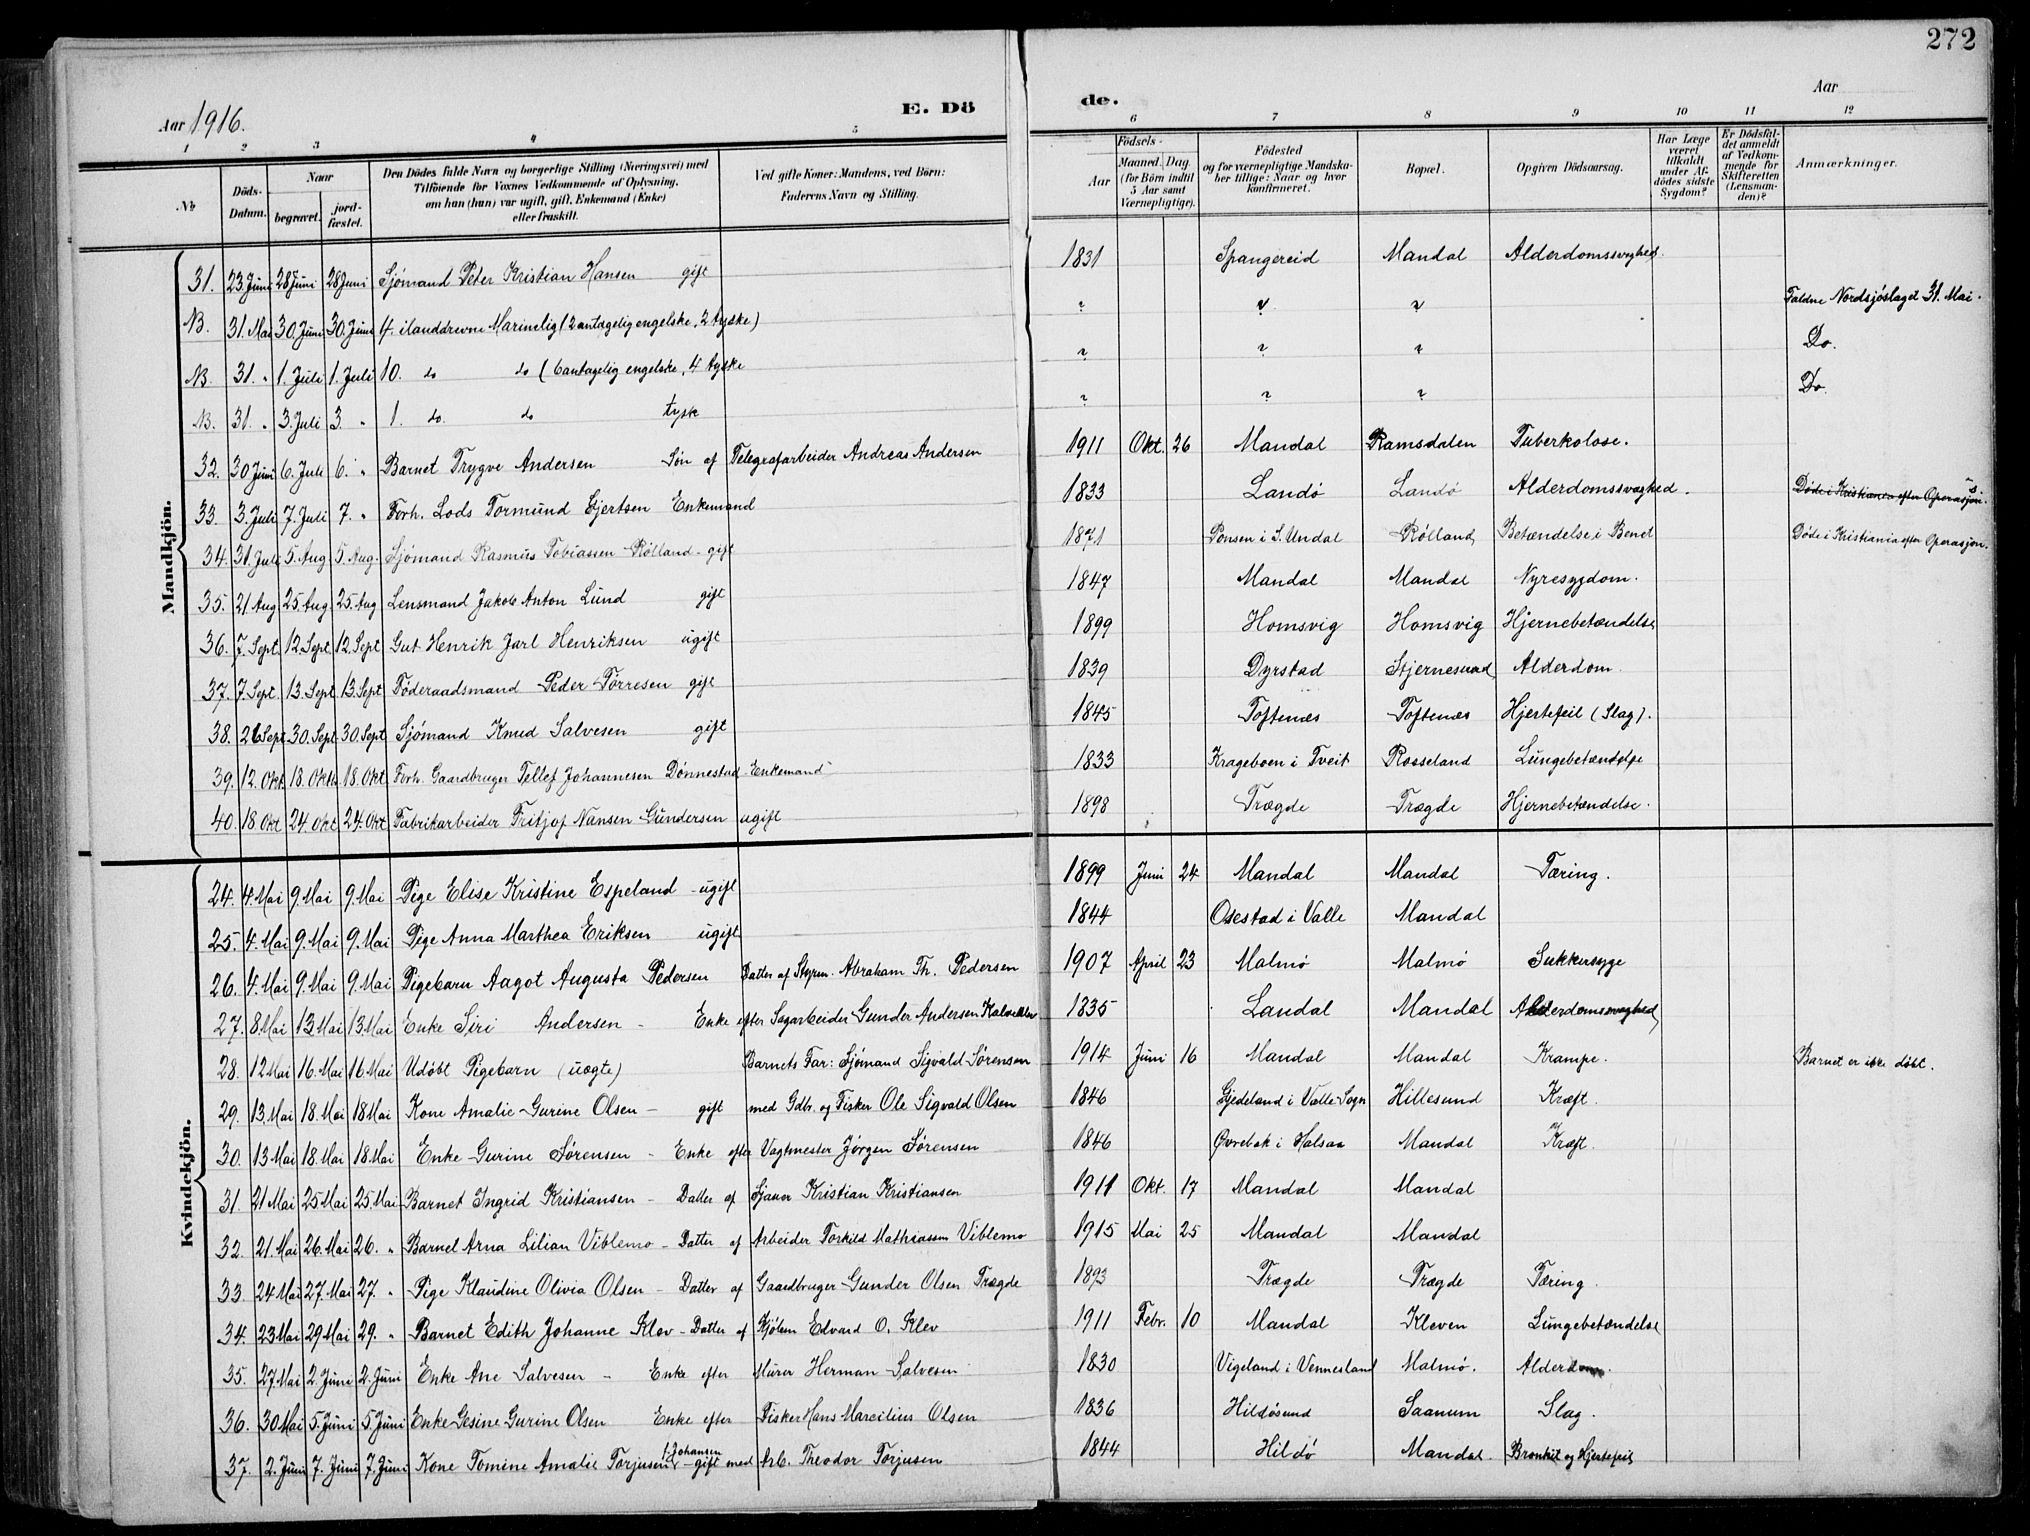 272
Aar 1916.
E. Dö
de.
Aar
1 2 3 4 5 6 7 8 9 10 11 12
No
Döds-Datum.
Naar
begravet.
jord-fæstet.
Den Dödes fulde Navn og borgerlige Stilling (Næringsvei) med
Tilföiende for Voxnes Vedkommende af Oplysning,
om han (hun) var ugift, gift, Enkemand (Enke)
eller fraskilt.
Ved gifte Koner: Mandens, ved Börn:
Faderens Navn og Stilling.
Födsels-
Aar
Maaned. Dag.
(for Börn indtil
5 Aar samt
Værnepligtige).
Födested
og for værnepligtige Mandska-
ber tillige: Naar og hvor
konfirmeret.
Bopæl.
Opgiven Dödsaarsag.
Har Læge
været
tilkaldt
under Af-
dödes sidste
Sygdom?
Er Dödsfal-
det anmeldt
af Vedkom-
mende for
Skifteretten
(Lensman-
den)?
Anmærkninger.
Mandkjön.
31. 23 Juni 28 Juni 28 Juni Sjømand Peter Kristian Hansen gift 1831 Spangereid Mandal Alderdomssvaghed
N.B. 31. Mai 30 Juni 30 Juni 4 ilanddrevne Marinelig (2 antagelig engelske, 2 tyske) ? ? ? Faldne Nordsjøslaget 31. Mai.
N.B. 31. " 1. Juli 1. Juli 10. do do (6 antagelig engelske, 4 tyske ? ? ? Do.
N.B. 31. " 3. Juli 3. " 1. do. do tysk ? ? ? Do.
32. 30 Juni 6. Juli 6. " Barnet Trygve Andersen Søn af Telegrafarbeider Andreas Andersen 1911 Okt. 26 Mandal Ramsdalen Tuberkolose.
33. 3. Juli 7. Juli 7. " Forh. Lods Tormund Gjertsen Enkemand 1833 Landø Landø Alderdomssvaghed. Døde i Kristiania efter Operasjon.
34. 31. Juli 5. Aug 5. Aug. Sjømand Rasmus Tobiassen Rølland - gift 1871 Ponsen i S. Undal Rølland Betændelse i Benet Døde i Kristiania efter Operasjon.
35. 21 Aug 25. Aug. 25. Aug Lensmand Jakob Anton Lund gift 1847 Mandal Mandal Nyresygdom.
36. 7. Sept 12. Sept. 12. Sept Gut Henrik Jarl Henriksen ugift 1899 Homsvig Homsvig Hjernebetændelse
37. 7. Sept 13. Sept. 13. Sept Føderaadsmand Peder Tørresen gift 1839 Dyrstad Stjernesund Alderdom.
38. 26 Sept. 30. Sept. 30. Sept Sjømand Knud Salvesen gift 1845 Toftenæs Toftenæs Hjertefeil (Slag).
39. 12. Okt 18. Okt. 18. Okt Forh. Gaardbruger Tellef Johannesen Dønnestad Enkemand 1833 Krageboen i Tveit Rosseland Lungebetændelse
40. 18 Okt 24. Okt 24. Okt Fabrikarbeider Fritjof Nansen Gundersen ugift 1898 Trægde Trægde Hjernebetændelse.
Kvindekjön.
24. 4. Mai 9. Mai 9. Mai Pige Elise Kristine Espeland - ugift 1899 Juni 24 Mandal Mandal Tæring.
25. 4. Mai 9. Mai 9. Mai Pige Anna Marthea Eriksen ugift 1844 Osestad i Valle Mandal
26. 4. Mai 9. Mai 9. Mai Pigebarn Aagot Augusta Pedersen Datter af Styrm. Abraham Th. Pedersen 1907 April 23 Malmø Malmø Sukkersyge
27. 8. Mai 13. Mai 13. Mai Enke Siri Andersen - Enke efter Sagarbeider Gunder Andersen 1835 Landal Mandal Alderdomssvaghed
28. 12 Mai 16. Mai 16 Mai Udøbt Pigebarn (uægte) Barnets Far: Sjømand Sigvald Sørensen 1914 Juni 16 Mandal Mandal Krampe. Barnet er ikke døbt.
29. 13. Mai 18. Mai 18 Mai Kone Amalie Gurine Olsen - gift med Gdbr. og Fisker Ole Sigvald Olsen 1846 Gjedeland i Valle Sogn Hillesund Kræft.
30. 13 Mai 18. Mai 18. Mai Enke Gurine Sørensen - Enke efter Vagtmester Jørgen Sørensen 1846 Øvrebøk i Halsaa Mandal Kræft.
31. 21 Mai 25 Mai 25. Mai Barnet Ingrid Kristiansen - Datter af Sjauer Kristian Kristiansen 1911 Okt. 17 Mandal Mandal
32. 21. Mai 26. Mai 26. " Barnet Arna Lilian Viblemo - Datter af Arbeider Torkild Mathiassen Viblemo 1915 Mai 25 Mandal Mandal
33. 24 Mai 27 Mai 27. " Pige Klaudine Olivia Olsen - Datter af Gaardbruger Gunder Olsen Trægde 1893 Trægde Trægde Tæring.
34. 23 Mai 29 Mai 29. " Barnet Edith Johanne Klev - Datter af Kjølsm Edvard O. Klev 1911 Febr. 10 Mandal Kleven Lungebetændelse
35. 27. Mai 2. Juni 2. Juni Enke Ane Salvesen - Enke efter Murer Herman Salvesen 1830 Vigeland i Vennesland Malmø. Alderdom.
36. 30 Mai 5. Juni 5 Juni Enke Gesine Gurine Olsen Enke efter Fisker Hans Marcilius Olsen 1836 Hildøsund Saanum Slag.
37. 2. Juni 7. Juni 7. Juni Kone Tomine Amalie Torjusen f. Johansen - gift med Arb. Theodor Torjusen 1844 Hildø Mandal. Bronkit og Hjertefeil